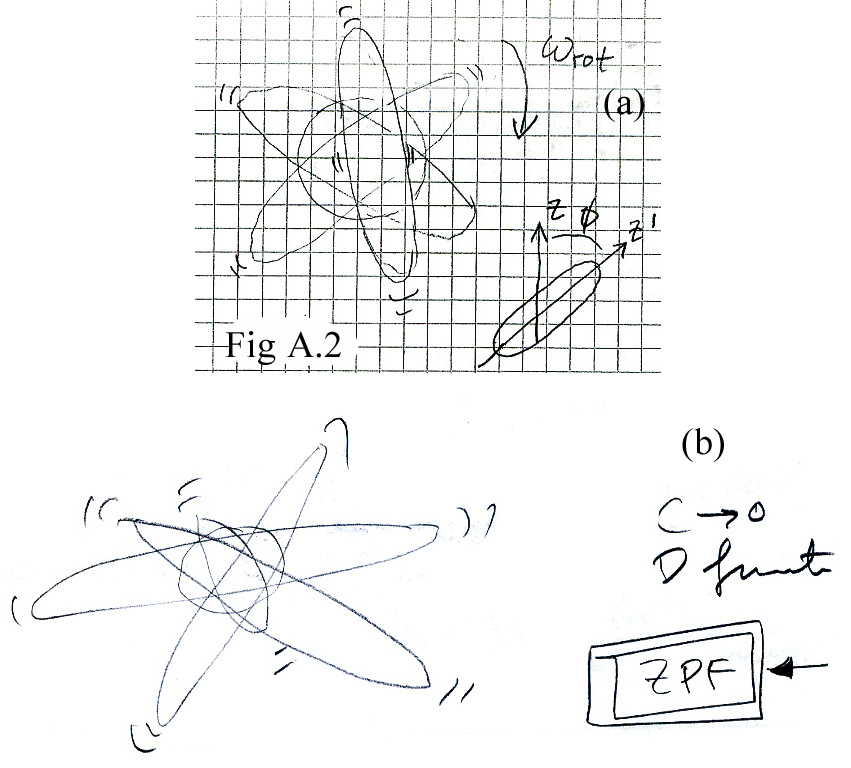 ω rot
(a)
z ϕ z'
Fig A.2
(b)
C → 0
D finite
ZPF